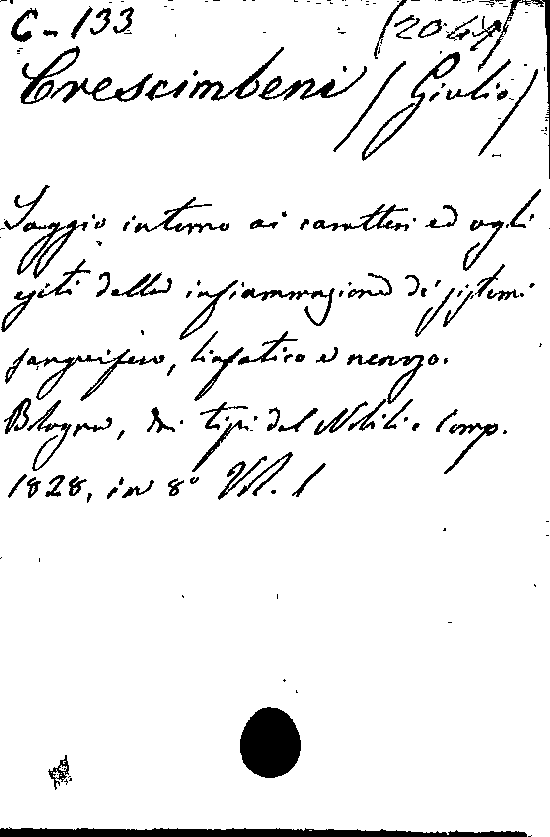 C-133 (2049)
Crescimbeni (Giulio)
Saggio intorno ai caratteri ed agli
esiti della infiammazione de' sistemi
sanguifero, linfatico e nervoso.
Bologna, dai tipi del Nobili e Comp.
1828, in 8° Vol. 1